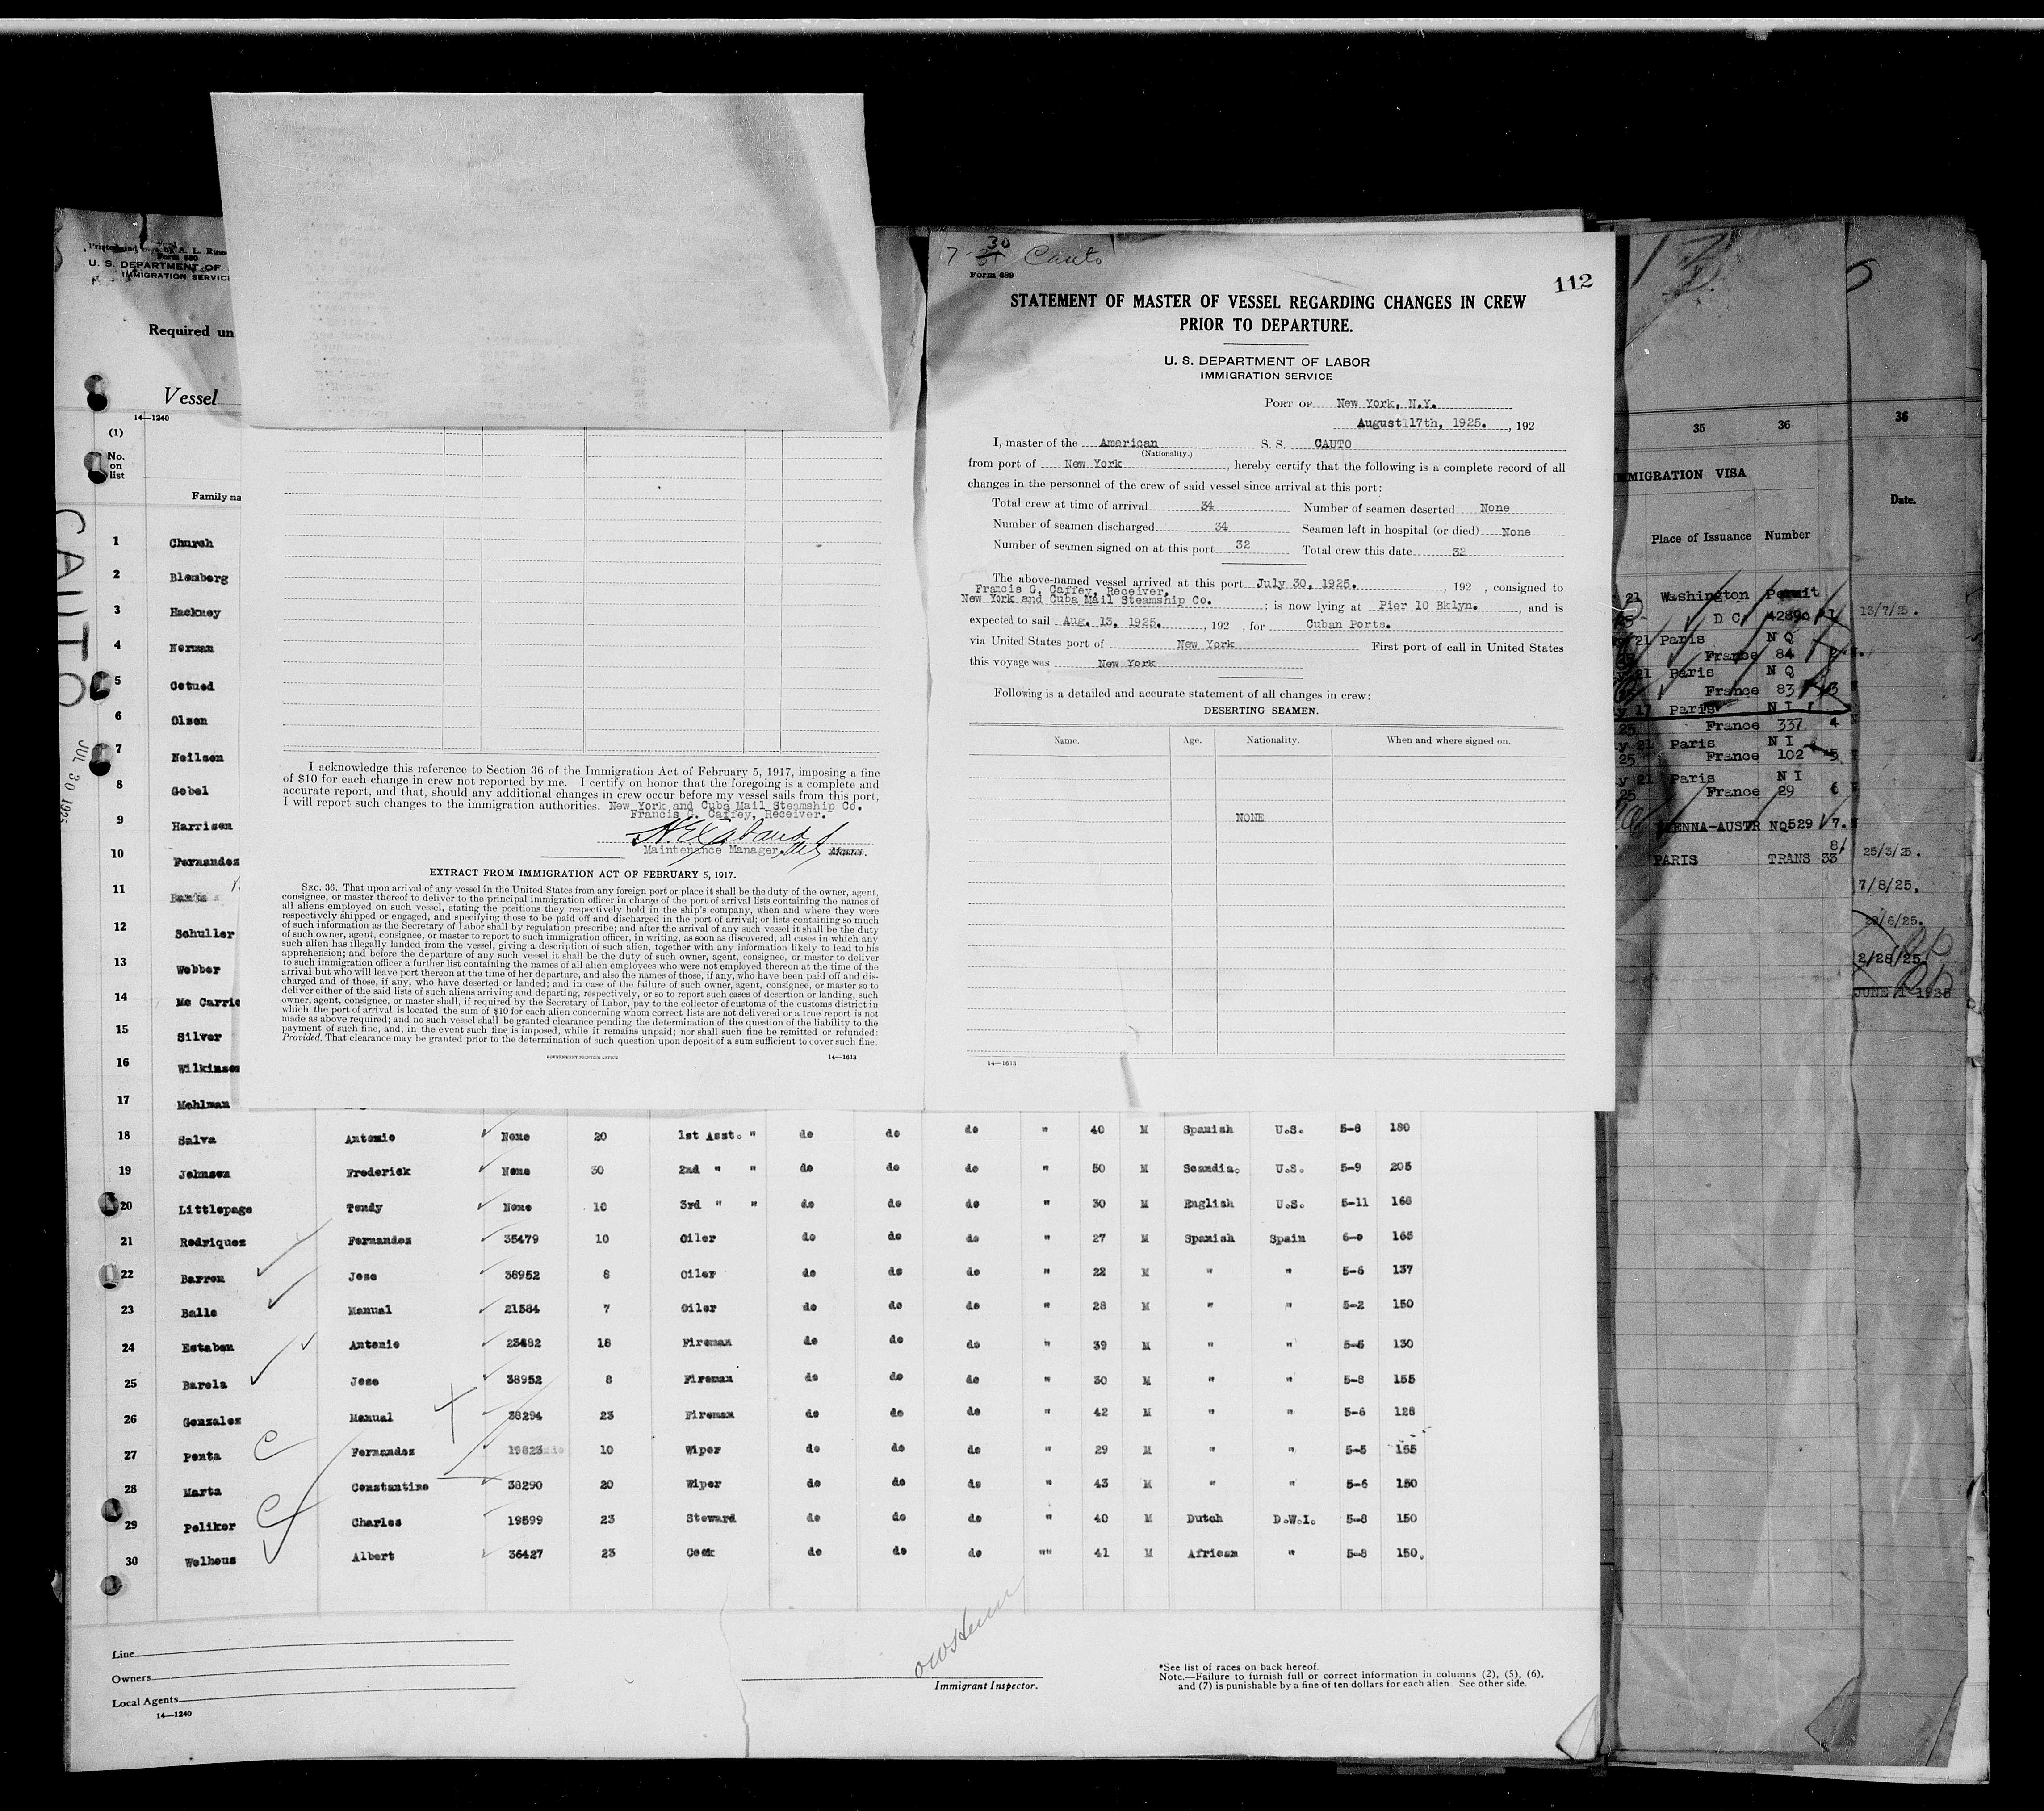 Form 680
U. S. DEPARTMENT OF
IMMIGRATION SERVICE
Required un
Vessel
14—1240
(1)
No.
on
list
Family na
CAUTO
JUL 30 1925
1 Church
2 Blomberg
3 Hackney
4 Norman
5 Cotued
6 Olsen
7 Neilson
8 Gobel
9 Harrison
10 Fernandez
11
12 Schuller
13 Webber
14 Mc Carrie
15 Silver
16 Wilkinson
17 Mehlman
I acknowledge this reference to Section 36 of the Immigration Act of February 5, 1917, imposing a fine
of $10 for each change in crew not reported by me. I certify on honor that the foregoing is a complete and
accurate report, and that, should any additional changes in crew occur before my vessel sails from this port,
I will report such changes to the immigration authorities. New York and Cuba Mail Steamship Co.
Francis G. Caffey, Receiver.
Maintenance Manager.
EXTRACT FROM IMMIGRATION ACT OF FEBRUARY 5, 1917.
SEC. 36. That upon arrival of any vessel in the United States from any foreign port or place it shall be the duty of the owner, agent,
consignee, or master thereof to deliver to the principal immigration officer in charge of the port of arrival lists containing the names of
all aliens employed on such vessel, stating the positions they respectively hold in the ship's company, when and where they were
respectively shipped or engaged, and specifying those to be paid off and discharged in the port of arrival; or lists containing so much
of such information as the Secretary of Labor shall by regulation prescribe; and after the arrival of any such vessel it shall be the duty
of such owner, agent, consignee, or master to report to such immigration officer, in writing, as soon as discovered, all cases in which any
such alien has illegally landed from the vessel, giving a description of such alien, together with any information likely to lead to his
apprehension; and before the departure of any such vessel it shall be the duty of such owner, agent, consignee, or master to deliver
to such immigration officer a further list containing the names of all alien employees who were not employed thereon at the time of the
arrival but who will leave port thereon at the time of her departure, and also the names of those, if any, who have been paid off and dis-
charged and of those, if any, who have deserted or landed; and in case of the failure of such owner, agent, consignee, or master so to
deliver either of the said lists of such aliens arriving and departing, respectively, or so to report such cases of desertion or landing, such
owner, agent, consignee, or master shall, if required by the Secretary of Labor, pay to the collector of customs of the customs district in
which the port of arrival is located the sum of $10 for each alien concerning whom correct lists are not delivered or a true report is not
made as above required; and no such vessel shall be granted clearance pending the determination of the question of the liability to the
payment of such fine, and, in the event such fine is imposed, while it remains unpaid; nor shall such fine be remitted or refunded:
Provided, That clearance may be granted prior to the determination of such question upon deposit of a sum sufficient to cover such fine.
GOVERNMENT PRINTING OFFICE 14—1613
7-30 Cauto
Form 689
112
STATEMENT OF MASTER OF VESSEL REGARDING CHANGES IN CREW
PRIOR TO DEPARTURE.
U. S. DEPARTMENT OF LABOR
IMMIGRATION SERVICE
PORT OF New York, N.Y.
August 17th, 1925. , 192
I, master of the American S. S. CAUTO
(Nationality.)
from port of New York , hereby certify that the following is a complete record of all
changes in the personnel of the crew of said vessel since arrival at this port:
Total crew at time of arrival 34 Number of seamen deserted None
Number of seamen discharged 34 Seamen left in hospital (or died) None
Number of seamen signed on at this port 32 Total crew this date 32
The above-named vessel arrived at this port July 30, 1925. , 192 , consigned to
Francis G. Caffey, Receiver,
New York and Cuba Mail Steamship Co. ; is now lying at Pier 10 Bklyn. , and is
expected to sail Aug. 13, 1925. , 192 , for Cuban Ports.
via United States port of New York First port of call in United States
this voyage was New York
Following is a detailed and accurate statement of all changes in crew:
DESERTING SEAMEN.
Name. Age. Nationality. When and where signed on.
NONE
14—1613
35 36 36
IMMIGRATION VISA
Place of Issuance Number Date.
21 Washington Permit
D C. 42890 1 13/7/25.
21 Paris N Q
France 84 2
21 Paris N Q
France 83 3
y 17 Paris N I
25 France 337 4
y 21 Paris N I
25 France 102 5
y 21 Paris N I
25 France 29 6
VIENNA-AUSTR NQ529 7.
8
PARIS TRANS 33 25/3/25.
7/8/25.
23/6/25.
2/28/25.
JUNE 1 1925
18 Salva Antonio None 20 1st Asst. " do do do " 40 M Spanish U.S. 5-8 180
19 Johnson Frederick None 30 2nd " " do do do " 50 M Scandia. U.S. 5-9 205
20 Littlepage Tendy None 10 3rd " " do do do " 30 M English U.S. 5-11 168
21 Rodriquez Fernandez 35479 10 Oiler do do do " 27 M Spanish Spain 6-0 165
22 Barron Jose 38952 8 Oiler do do do " 22 M " " 5-6 137
23 Balle Manual 21584 7 Oiler do do do " 28 M " " 5-2 150
24 Estaben Antonio 23682 18 Fireman do do do " 39 M " " 5-5 130
25 Barela Jose 38952 8 Fireman do do do " 30 M " " 5-8 155
26 Gonzales Manual 38294 23 Fireman do do do " 42 M " " 5-6 128
27 Penta Fernandez 19823 10 Wiper do do do " 29 M " " 5-5 155
28 Marta Constantine 38290 20 Wiper do do do " 43 M " " 5-6 150
29 Peliker Charles 19599 23 Steward do do do " 40 M Dutch D.W.I. 5-8 150
30 Welhous Albert 36427 23 Cook do do do "" 41 M African " 5-8 150.
Line
Owners
Local Agents
14—1240
Immigrant Inspector.
*See list of races on back hereof.
Note.—Failure to furnish full or correct information in columns (2), (5), (6),
and (7) is punishable by a fine of ten dollars for each alien. See other side.